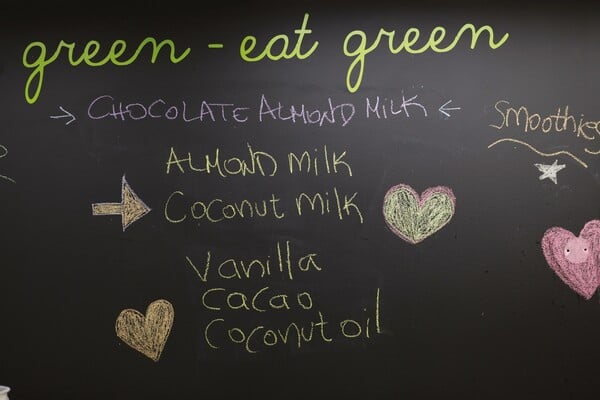 green - eat green
CHOCOLATE ALMOND MILK
Smoothies
ALMOND milk
Coconut milk
Vanilla
cacao
Coconut oil